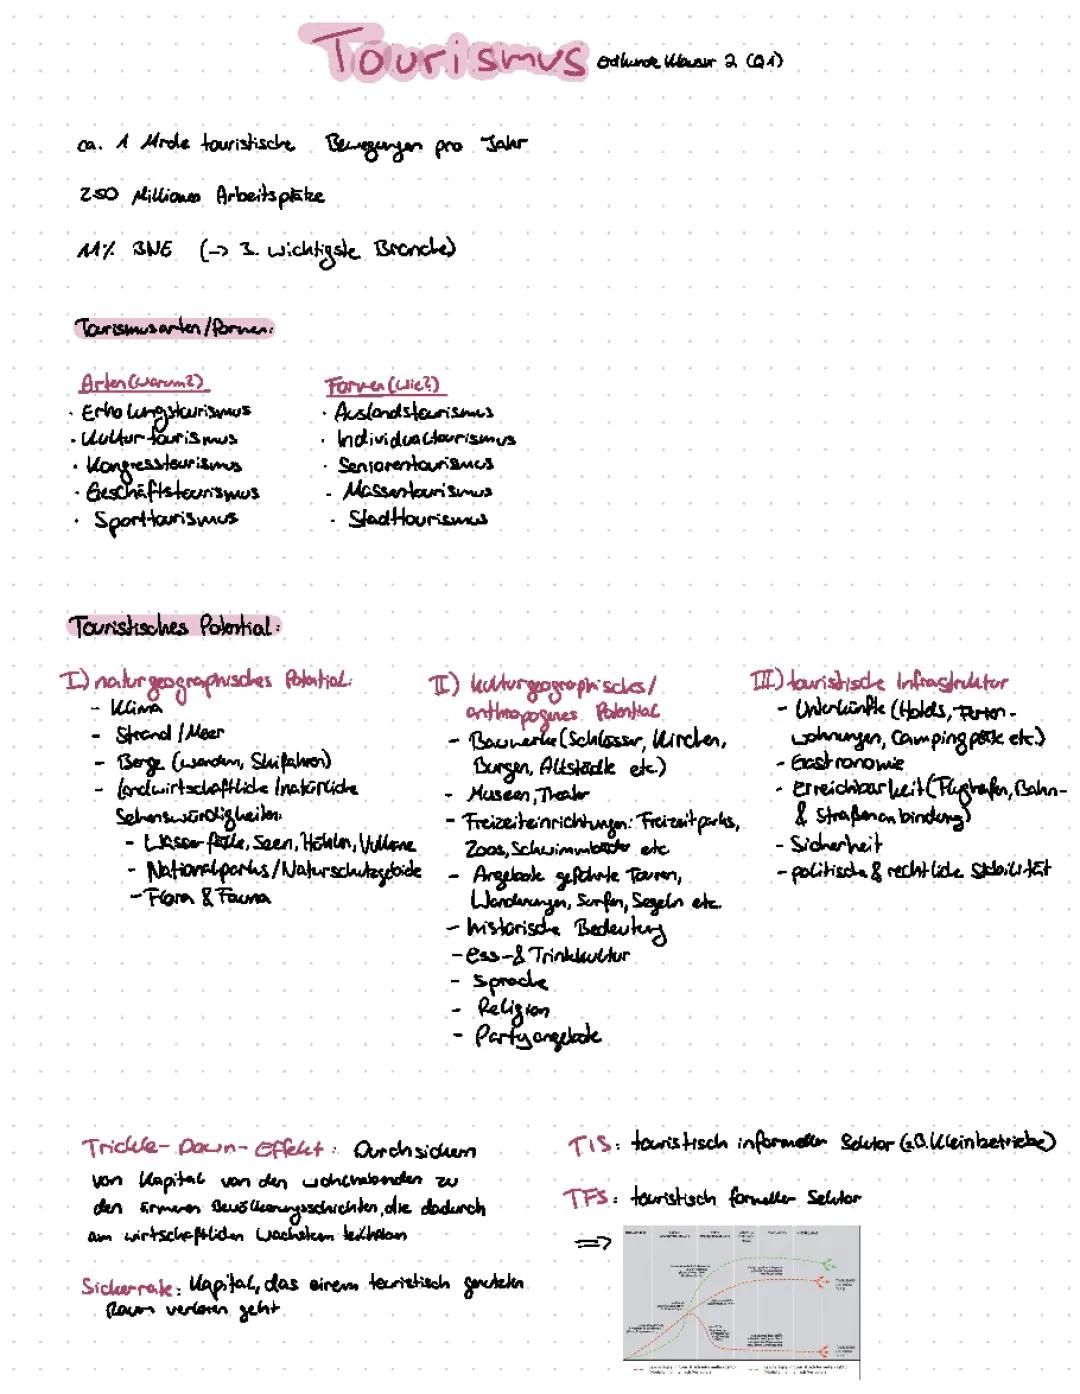 Tourismus Erdkunde Klausur 2 (Q1)
ca. 1 Mrde touristische Bewegungen pro Jahr
250 Millionen Arbeitsplätze
11% BNE (-> 3. wichtigste Branche)
Tourismusarten/formen:
Arten (warum?)
· Erholungstourismus
· Kulturtourismus
· Kongresstourismus
· Geschäftstourismus
· Sporttourismus
Formen (wie?)
· Auslandstourismus
· Individualtourismus
· Seniorentourismus
- Massentourismus
· Stadttourismus
Touristisches Potential:
I) naturgeographisches Potential:
- Klima
- Strand/Meer
- Berge (wandern, Skifahren)
- landwirtschaftliche/natürliche
Sehenswürdigkeiten:
- Wasserfälle, Seen, Höhlen, Vulkane
- Nationalparks/Naturschutzgebiete
- Flora & Fauna
II) kulturgeographisches/
anthropogenes Potential
- Bauwerke (Schlösser, Kirchen,
Burgen, Altstädte etc.)
- Museen, Theater
- Freizeiteinrichtungen: Freizeitparks,
Zoos, Schwimmbäder etc
- Angebote geführte Touren,
Wanderungen, Surfen, Segeln etc.
- historische Bedeutung
- Ess-& Trinkkultur
- Sprache
- Religion
- Partyangebote
III) touristische Infrastruktur
- Unterkünfte (Hotels, Ferien-
wohnungen, Campingplätze etc.)
- Gastronomie
- Erreichbarkeit (Flughafen, Bahn-
& Straßenanbindung)
- Sicherheit
- politische & rechtliche Stabilität
Trickle-Down-Effekt: Durchsickern
von Kapital von den wohlhabenden zu
den ärmeren Bevölkerungsschichten, die dadurch
am wirtschaftlichen Wachstum teilhaben
Sickerrate: Kapital, das einem touristisch genutzten
Raum verloren geht
TIS: touristisch informeller Sektor (z.B. Kleinbetriebe)
TFS: touristisch formeller Sektor
=>